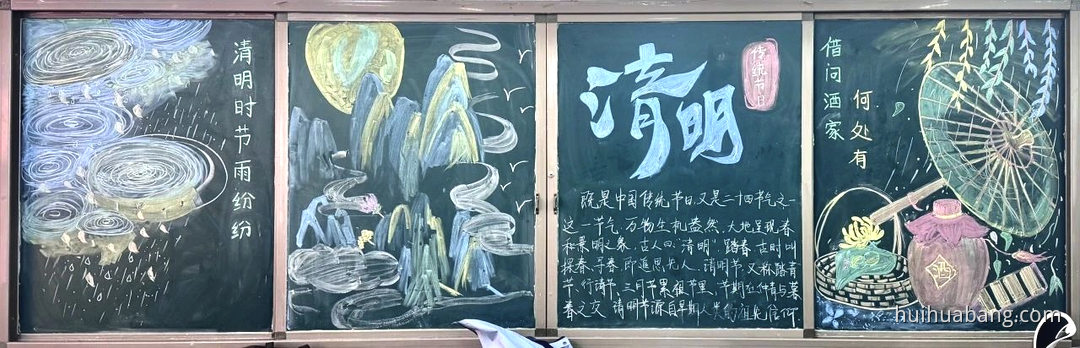 清明时节雨纷纷
清明
传统节日
既是中国传统节日,又是二十四节气之一
这一节气,万物生机盎然,大地呈现春
和景明之象,古人曰"清明"踏春,古时叫
探春、寻春,即追思先人,清明节,又称踏青
节、行清节、三月节、祭祖节里,节期在仲春与暮
春之交,清明节源自早期人类的祖先信仰
借问酒家
何处有
酒
huihuabang.com